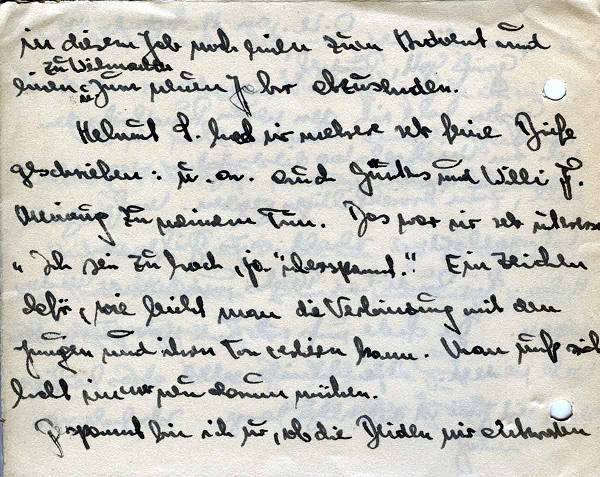 in diesem Jahr noch einen zum Advent und
zu Weihnachten
einen u. zum neuen Jahr abzusenden.
Helmut S. hat mir mehrere sehr feine Briefe
geschrieben: u. a. auch Günthers und Willi F.
Meinung zu meinem Tun. Das war mir sehr
„Ich sei zu hoch, ja "überspannt." Ein Zeichen
dafür, wie leicht man die Verbindung mit den
Jungen und ihren Ton verlieren kann. Man muß sich
halt immer neu darum mühen.
Gespannt bin ich nur, ob die Beiden mir antworten